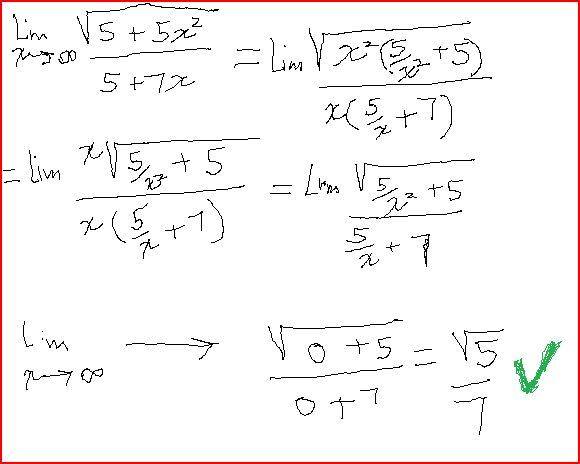 Lim x→∞ √(5 + 5x²) / (5 + 7x) = Lim √(x²(5/x² + 5)) / (x(5/x + 7))
= Lim x√(5/x² + 5) / (x(5/x + 7)) = Lim √(5/x² + 5) / (5/x + 7)
Lim x→∞ ⟶ √(0 + 5) / (0 + 7) = √5 / 7 ✓